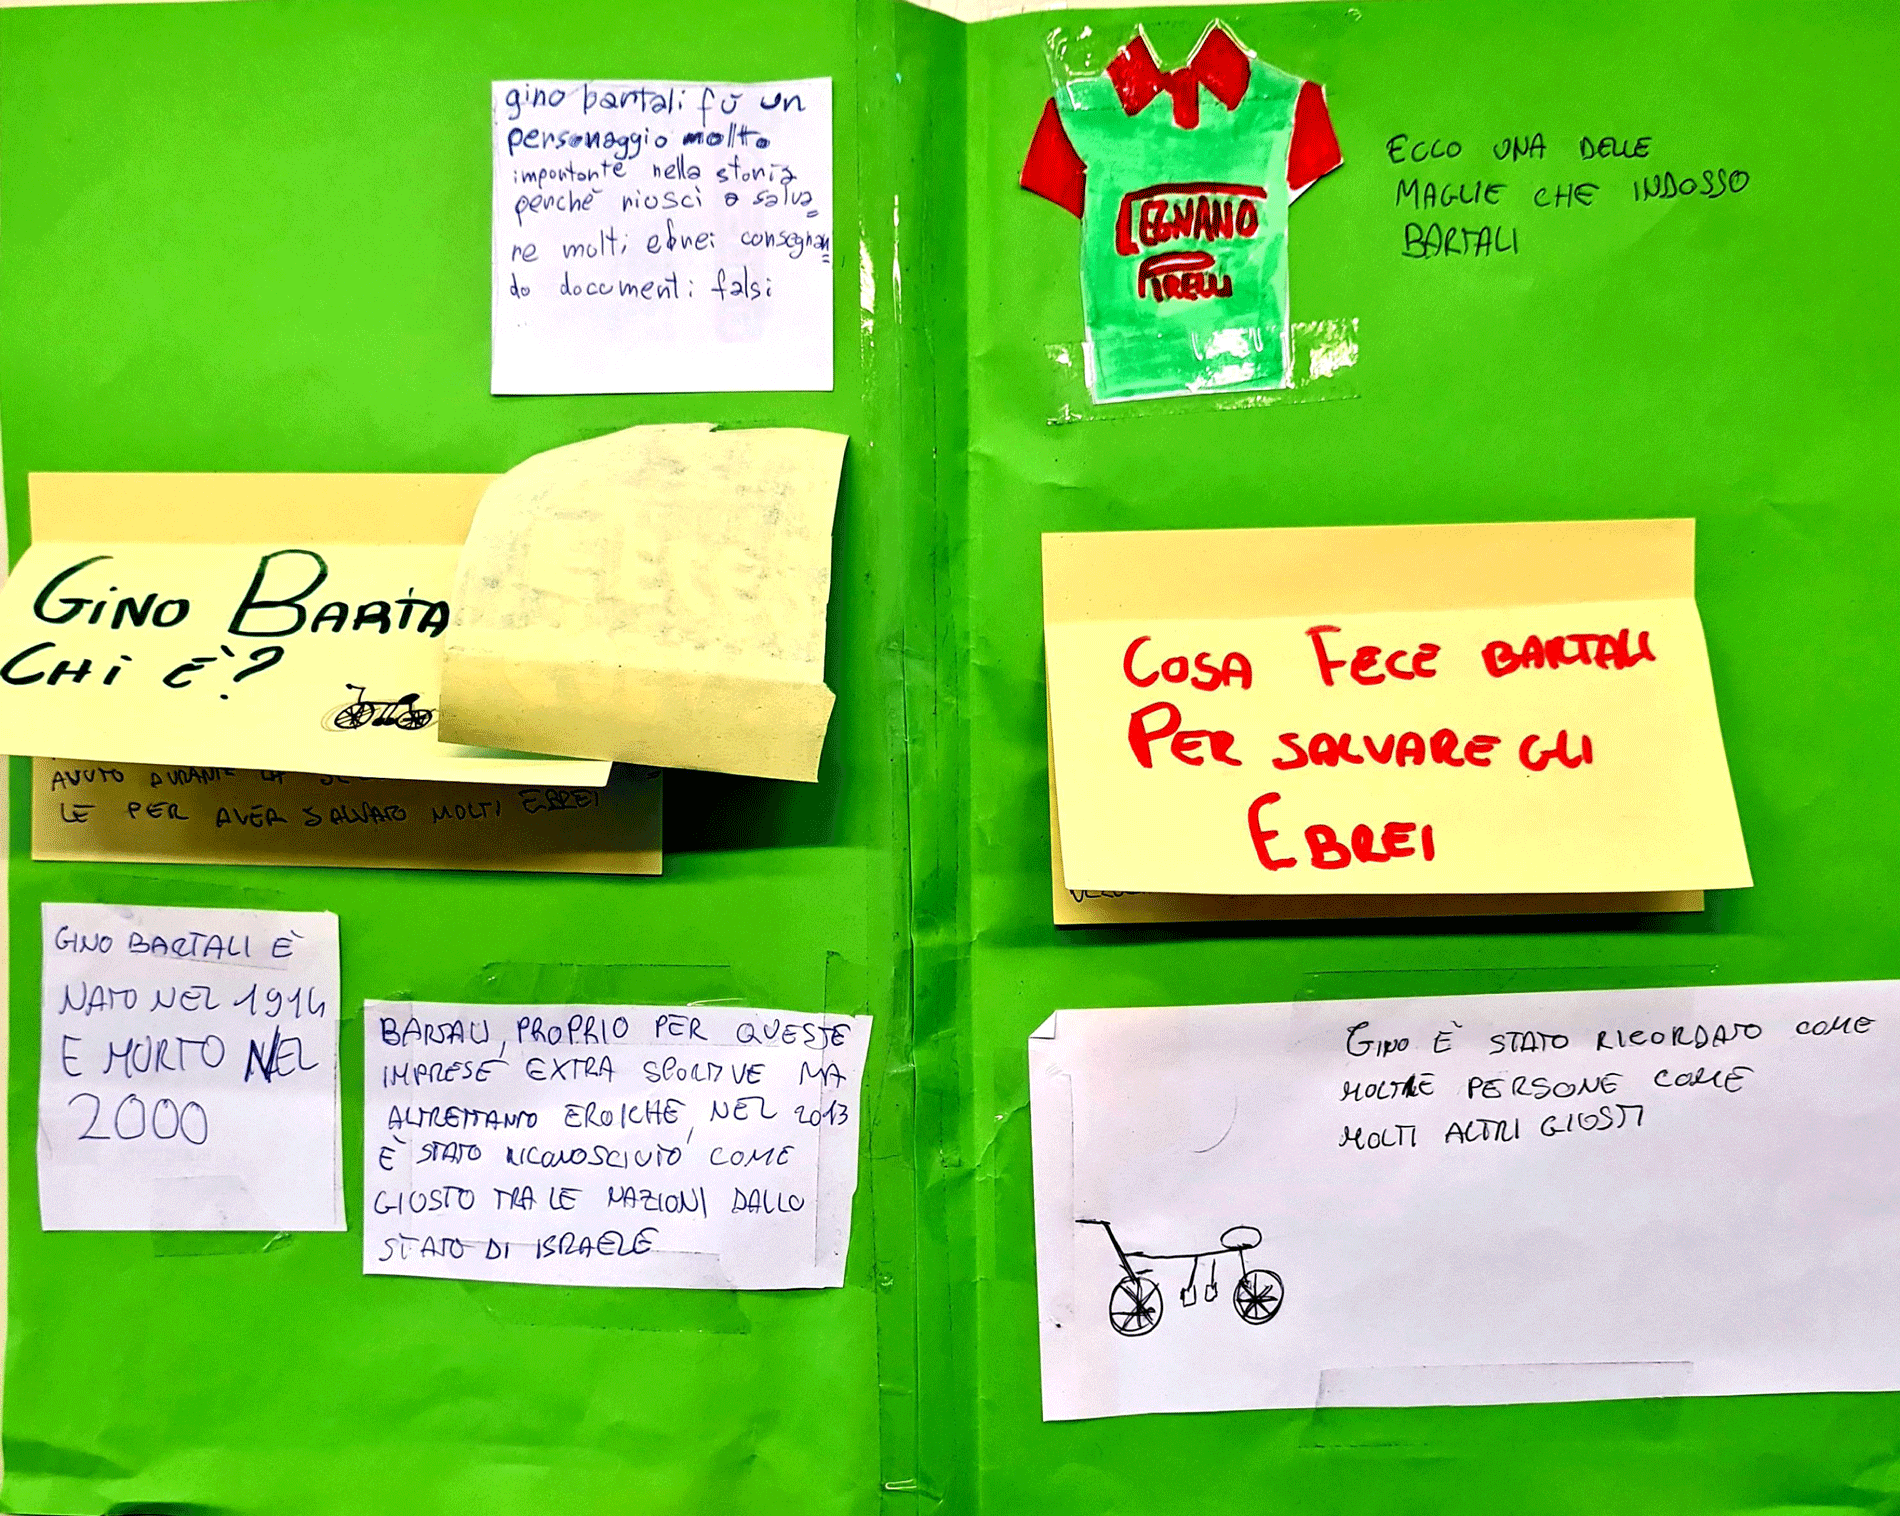 gino bartali fù un
personaggio molto
importante nella storia
perchè riuscì a salva=
re molti ebrei consegnan=
do documenti falsi
GINO BARTA
CHI È?
AVUTO DURANTE LA
LE PER AVER SALVATO MOLTI EBREI
GINO BARTALI È
NATO NEL 1914
E MORTO NEL
2000
BARTALI, PROPRIO PER QUESTE
IMPRESE EXTRA SPORTIVE MA
ALTRETTANTO EROICHE, NEL 2013
È STATO RICONOSCIUTO COME
GIUSTO TRA LE NAZIONI DALLO
STATO DI ISRAELE
LEGNANO
PIRELLI
ECCO UNA DELLE
MAGLIE CHE INDOSSO
BARTALI
COSA FECE BARTALI
PER SALVARE GLI
EBREI
GINO È STATO RICORDATO COME
MOLTRE PERSONE COME
MOLTI ALTRI GIUSTI